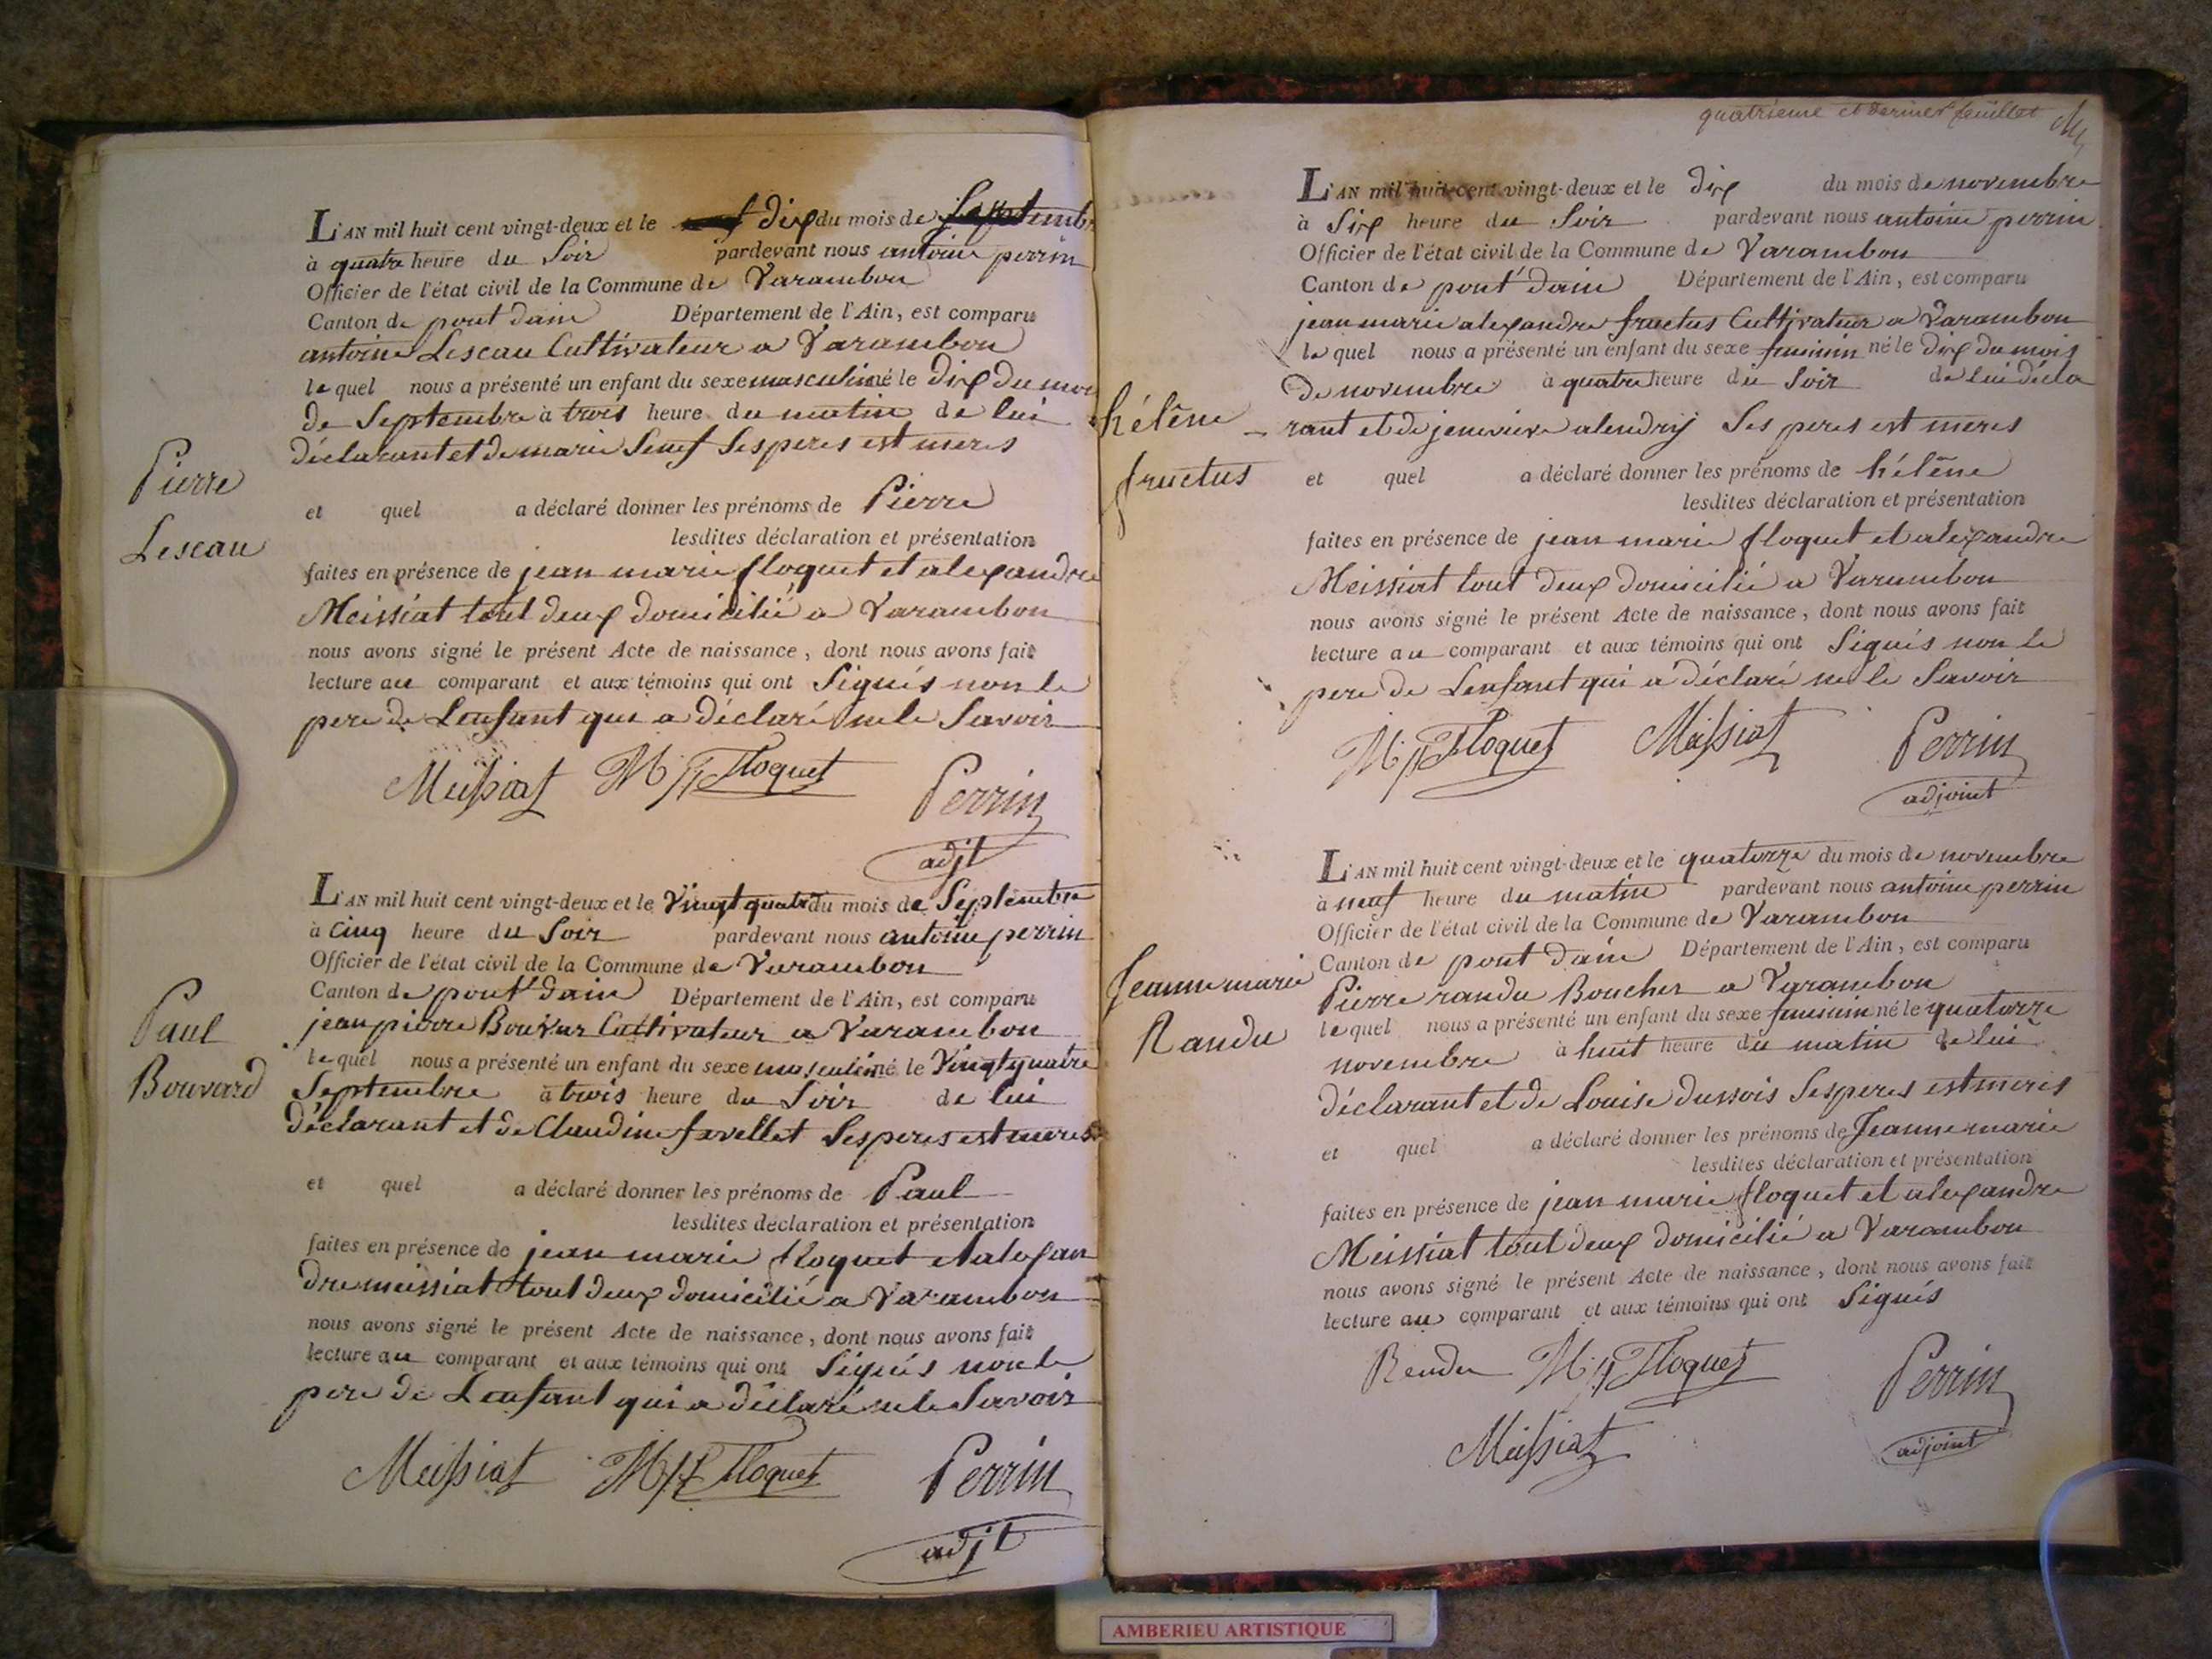 L'AN mil huit cent vingt-deux et le dix du mois de Septembre
à quatre heure du Soir pardevant nous antoine perrin
Officier de l'état civil de la Commune de Varambon
Canton de pont dain Département de l'Ain, est comparu
antoine Lescau Cultivateur a Varambon
lequel nous a présenté un enfant du sexe masculin né le dix du mois
de Septembre à trois heure du matin de lui
déclarant et de marie Ses peres est meres
et quel a déclaré donner les prénoms de Pierre
lesdites déclaration et présentation
faites en présence de jean marie floquet et alexandre
Meissiat tout deux domicilié a Varambon
nous avons signé le présent Acte de naissance, dont nous avons fait
lecture au comparant et aux témoins qui ont Signés non le
pere de Lenfant qui a déclaré ne le Savoir
Meissiat Floquet Perrin
adjt
Pierre
Lescau
L'AN mil huit cent vingt-deux et le Vingt quatre du mois de Septembre
à Cinq heure du Soir pardevant nous antoine perrin
Officier de l'état civil de la Commune de Varambon
Canton de pont dain Département de l'Ain, est comparu
jean pierre Bouvar Cultivateur a Varambon
lequel nous a présenté un enfant du sexe masculin né le Vingt quatre
Septembre à trois heure du Soir de lui
déclarant et de Claudine favellet Ses peres est meres
et quel a déclaré donner les prénoms de Paul
lesdites déclaration et présentation
faites en présence de jean marie floquet et alexan
dre meissiat tout deux domicilié a Varambon
nous avons signé le présent Acte de naissance, dont nous avons fait
lecture au comparant et aux témoins qui ont Signés non le
pere de Lenfant qui a déclaré ne le Savoir
Meissiat Floquet Perrin
adjt
Paul
Bouvard
quatrième et dernier feuillet
L'AN mil huit cent vingt-deux et le dix du mois de novembre
à Six heure du Soir pardevant nous antoine perrin
Officier de l'état civil de la Commune de Varambon
Canton de pont dain Département de l'Ain, est comparu
jean marie alexandre fructus Cultivateur a Varambon
lequel nous a présenté un enfant du sexe feminin né le dix du mois
de novembre à quatre heure du Soir de lui décla
rant et de jenevieve alendry Ses peres est meres
et quel a déclaré donner les prénoms de hélène
lesdites déclaration et présentation
faites en présence de jean marie floquet et alexandre
Meissiat tout deux domicilié a Varambon
nous avons signé le présent Acte de naissance, dont nous avons fait
lecture au comparant et aux témoins qui ont Signés non le
pere de Lenfant qui a déclaré ne le Savoir
Floquet Meissiat Perrin
adjoint
hélène
fructus
L'AN mil huit cent vingt-deux et le quatorze du mois de novembre
à neuf heure du matin pardevant nous antoine perrin
Officier de l'état civil de la Commune de Varambon
Canton de pont dain Département de l'Ain, est comparu
Pierre randu Boucher a Varambon
lequel nous a présenté un enfant du sexe feminin né le quatorze
novembre à huit heure du matin de lui
déclarant et de Louise dussois Ses peres est meres
et quel a déclaré donner les prénoms de Jeanne marie
lesdites déclaration et présentation
faites en présence de jean marie floquet et alexandre
Meissiat tout deux domicilié a Varambon
nous avons signé le présent Acte de naissance, dont nous avons fait
lecture au comparant et aux témoins qui ont Signés
Rendu Floquet Perrin
Meissiat adjoint
Jeanne marie
Randu
AMBERIEU ARTISTIQUE